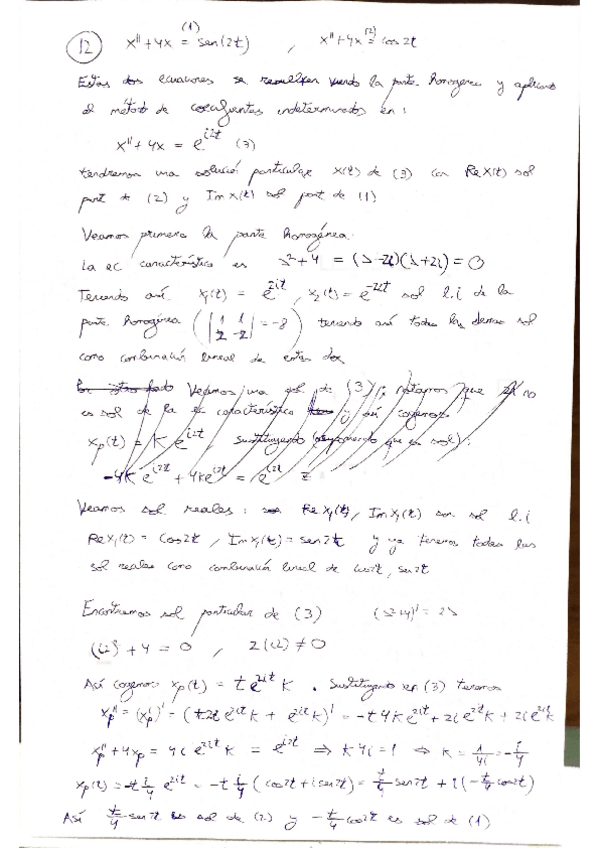 12 x'' + 4x (1)= sen(2t) , x'' + 4x (2)= cos 2t
Estas dos ecuaciones se resuelven viendo la parte homogénea y aplicando
el método de coeficientes indeterminados en:
x'' + 4x = e^{i2t} (3)
tendremos una solución particular x(t) de (3) con Re x(t) sol
part de (2) y Im x(t) sol part de (1)
Veamos primero la parte homogénea.
La ec característica es λ² + 4 = (λ-2i)(λ+2i) = 0
Teniendo así x₁(t) = e^{2it}, x₂(t) = e^{-2it} sol l.i de la
parte homogénea (|1 1 / 2 -2| = -8) teniendo así todas las demás sol
como combinación lineal de estas dos
Veamos una sol de (3), notamos que no
es sol de la ec característica y así cogemos
x_p(t) = K e^{i2t}, sustituyendo (suponiendo que es sol):
-4K e^{i2t} + 4K e^{i2t} = e^{i2t}
Veamos sol reales: Re x₁(t), Im x₁(t) son sol l.i
Re x₁(t) = cos 2t, Im x₁(t) = sen 2t y ya tenemos todas las
sol reales como combinación lineal de cos 2t, sen 2t
Encontremos sol particular de (3) (λ²+4)' = 2λ
(i2)² + 4 = 0 , 2(i2) ≠ 0
Así cogemos x_p(t) = t e^{2it} K. Sustituyendo en (3) tenemos
x_p'' = (x_p')' = (t2i e^{2it} K + e^{2it} K)' = -t4K e^{2it} + 2i e^{2it} K + 2i e^{2it} K
x_p'' + 4x_p = 4i e^{2it} K = e^{i2t} ⇒ K4i = 1 ⇒ K = 1/4i = -i/4
x_p(t) = -t i/4 e^{2it} = -t i/4 (cos 2t + i sen 2t) = t/4 sen 2t + i(-t/4 cos 2t)
Así t/4 sen 2t es sol de (2) y -t/4 cos 2t es sol de (1)